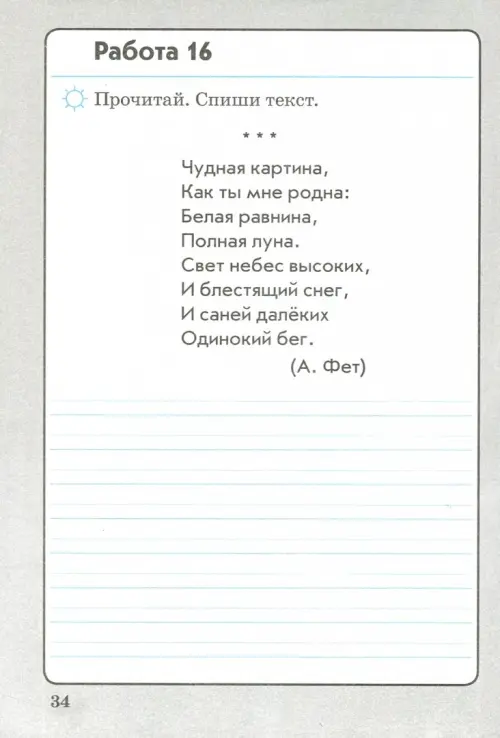 Работа 16
Прочитай. Спиши текст.
* * *
Чудная картина,
Как ты мне родна:
Белая равнина,
Полная луна.
Свет небес высоких,
И блестящий снег,
И саней далёких
Одинокий бег.
(А. Фет)
34